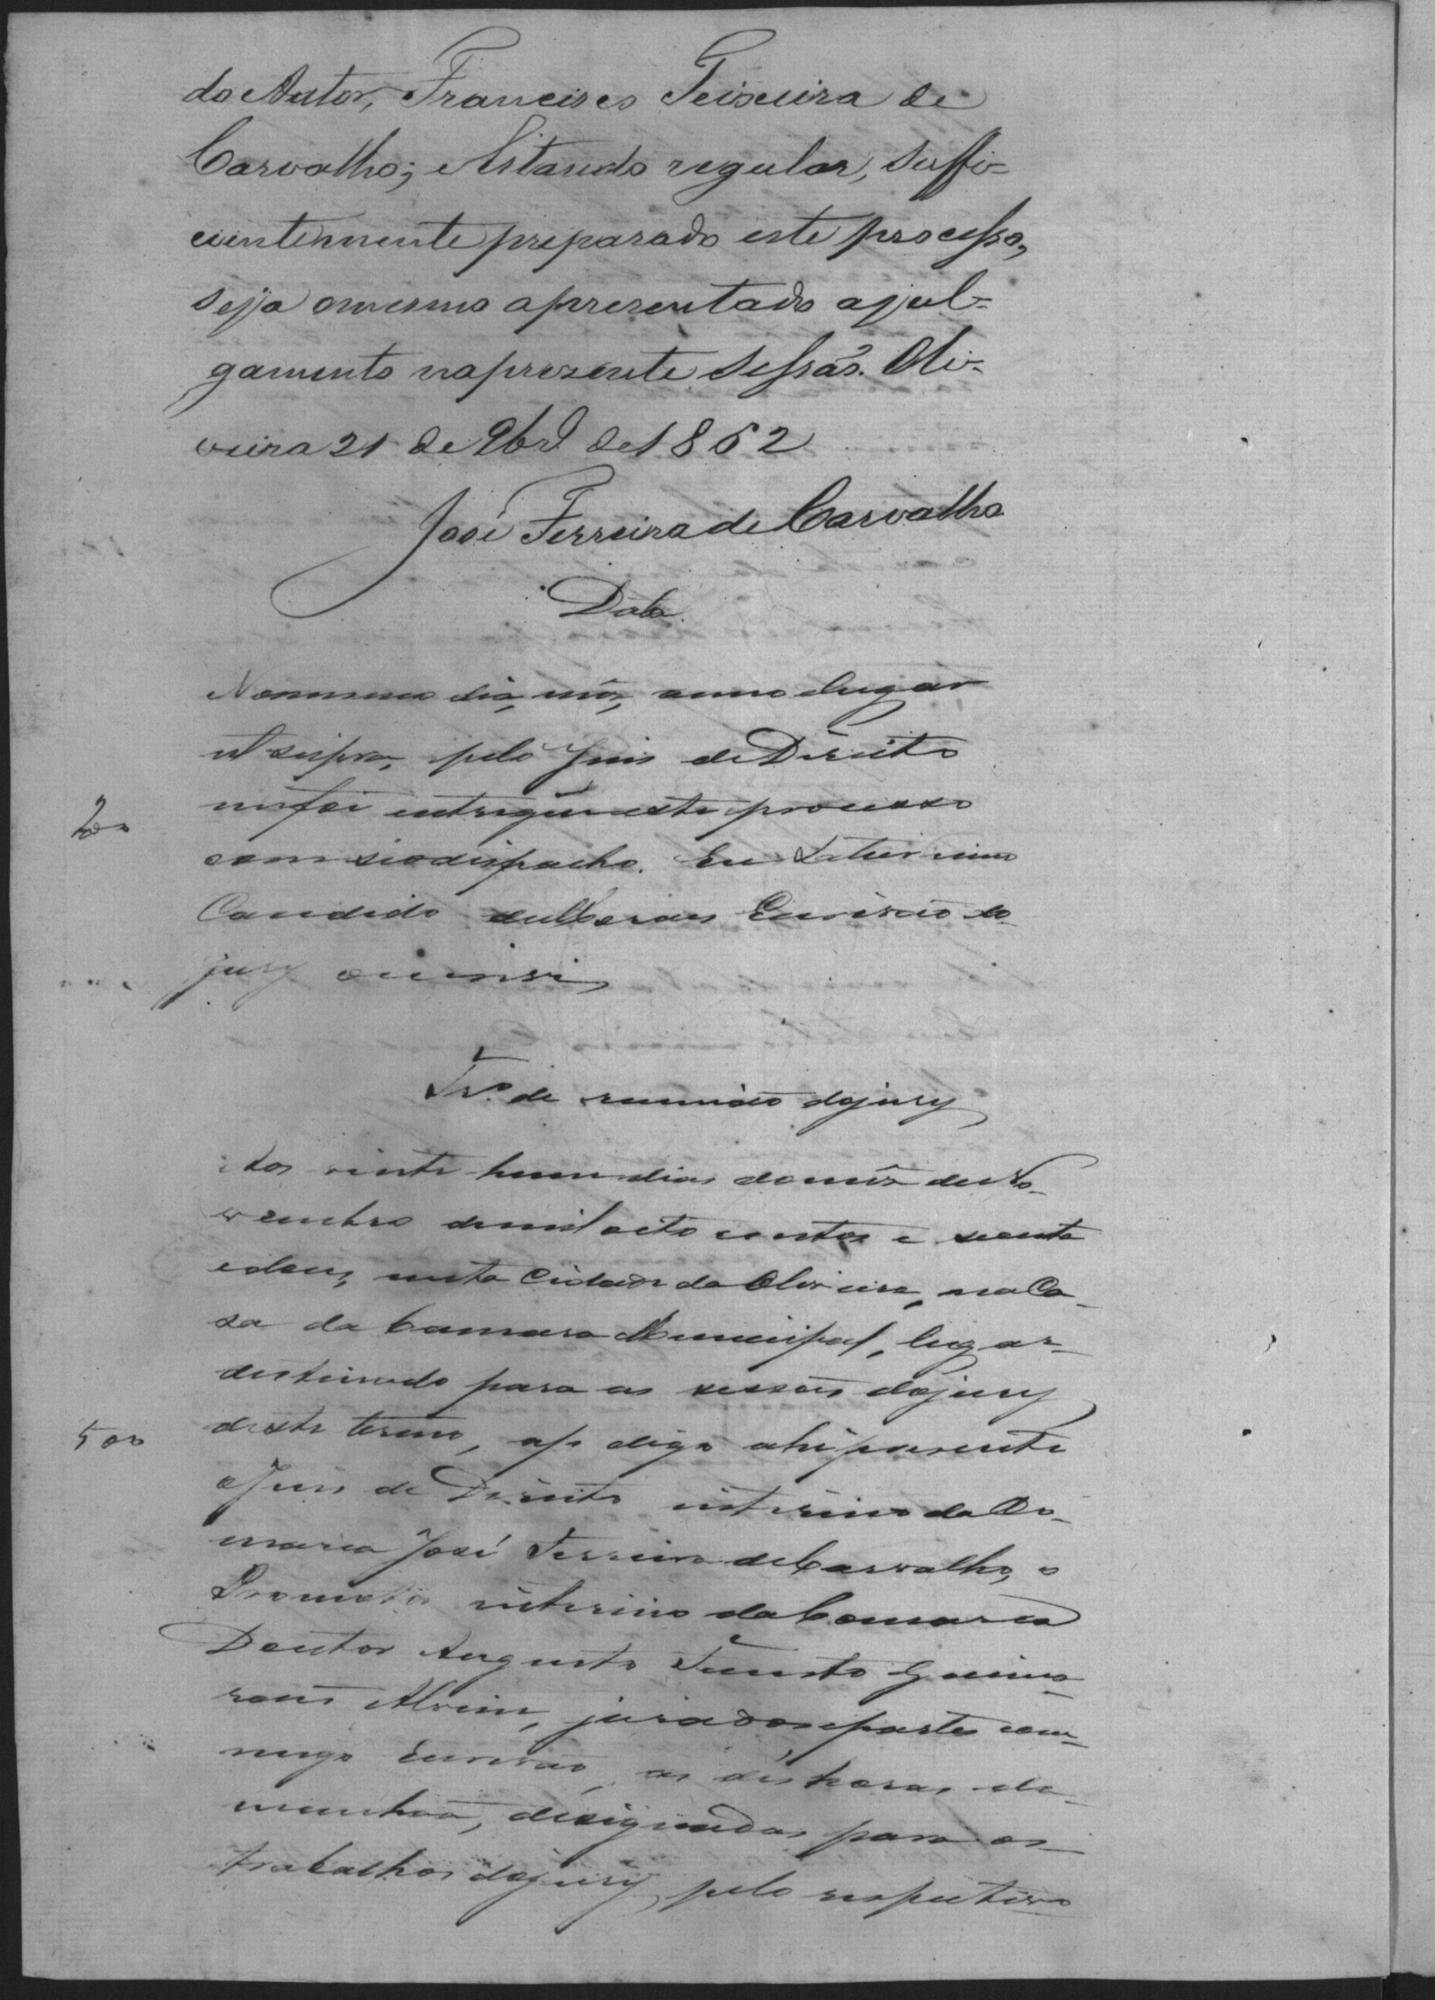 do Autor, Francisco Teixeira de
Carvalho; e Estando regular, suffi-
cientemente preparado este processo,
seja omesmo apresentado a jul-
gamento na prezente Sessão. Oli-
veira 21 de 9br.º de 1862
José Ferreira de Carvalho
Data
No mesmo dia, mês, anno e lugar
ut supra, pelo Juis de Direito
me foi entregue este processo
200
com seo despacho. Eu
Candido de Moraes Escrivão do
jury o escrevi
Tr.º de reunião do jury
Aos vinte hum dias do mês de No-
vembro de mil oito centos e secenta
e dous, nesta Cidade da Oliveira, na Ca-
sa da Camara Municipal, lugar
destinado para as sessões do jury
deste termo, ap digo ahi presente
500
o Juis de Direito interino da Co-
marca José Ferreira de Carvalho, o
Promotor interino da Comarca
Doutor Augusto Fausto Guima-
raes Alvim, jurados e partes com-
migo Escrivão, as dés horas da
manhaã, designadas para os
trabalhos do jury, pelo respectivo